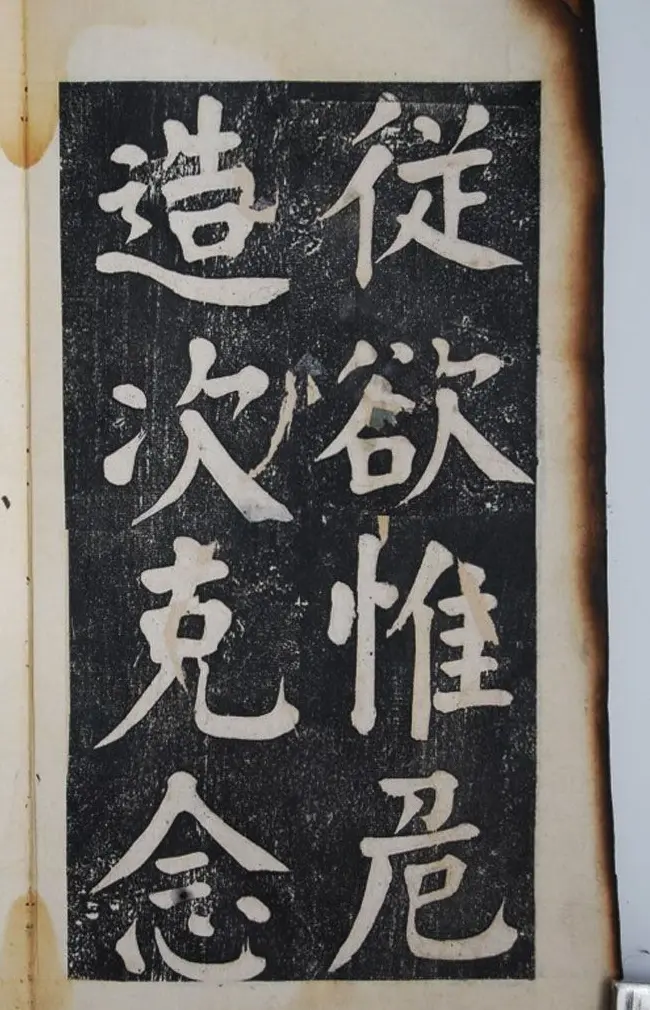 従欲惟危
造次克念